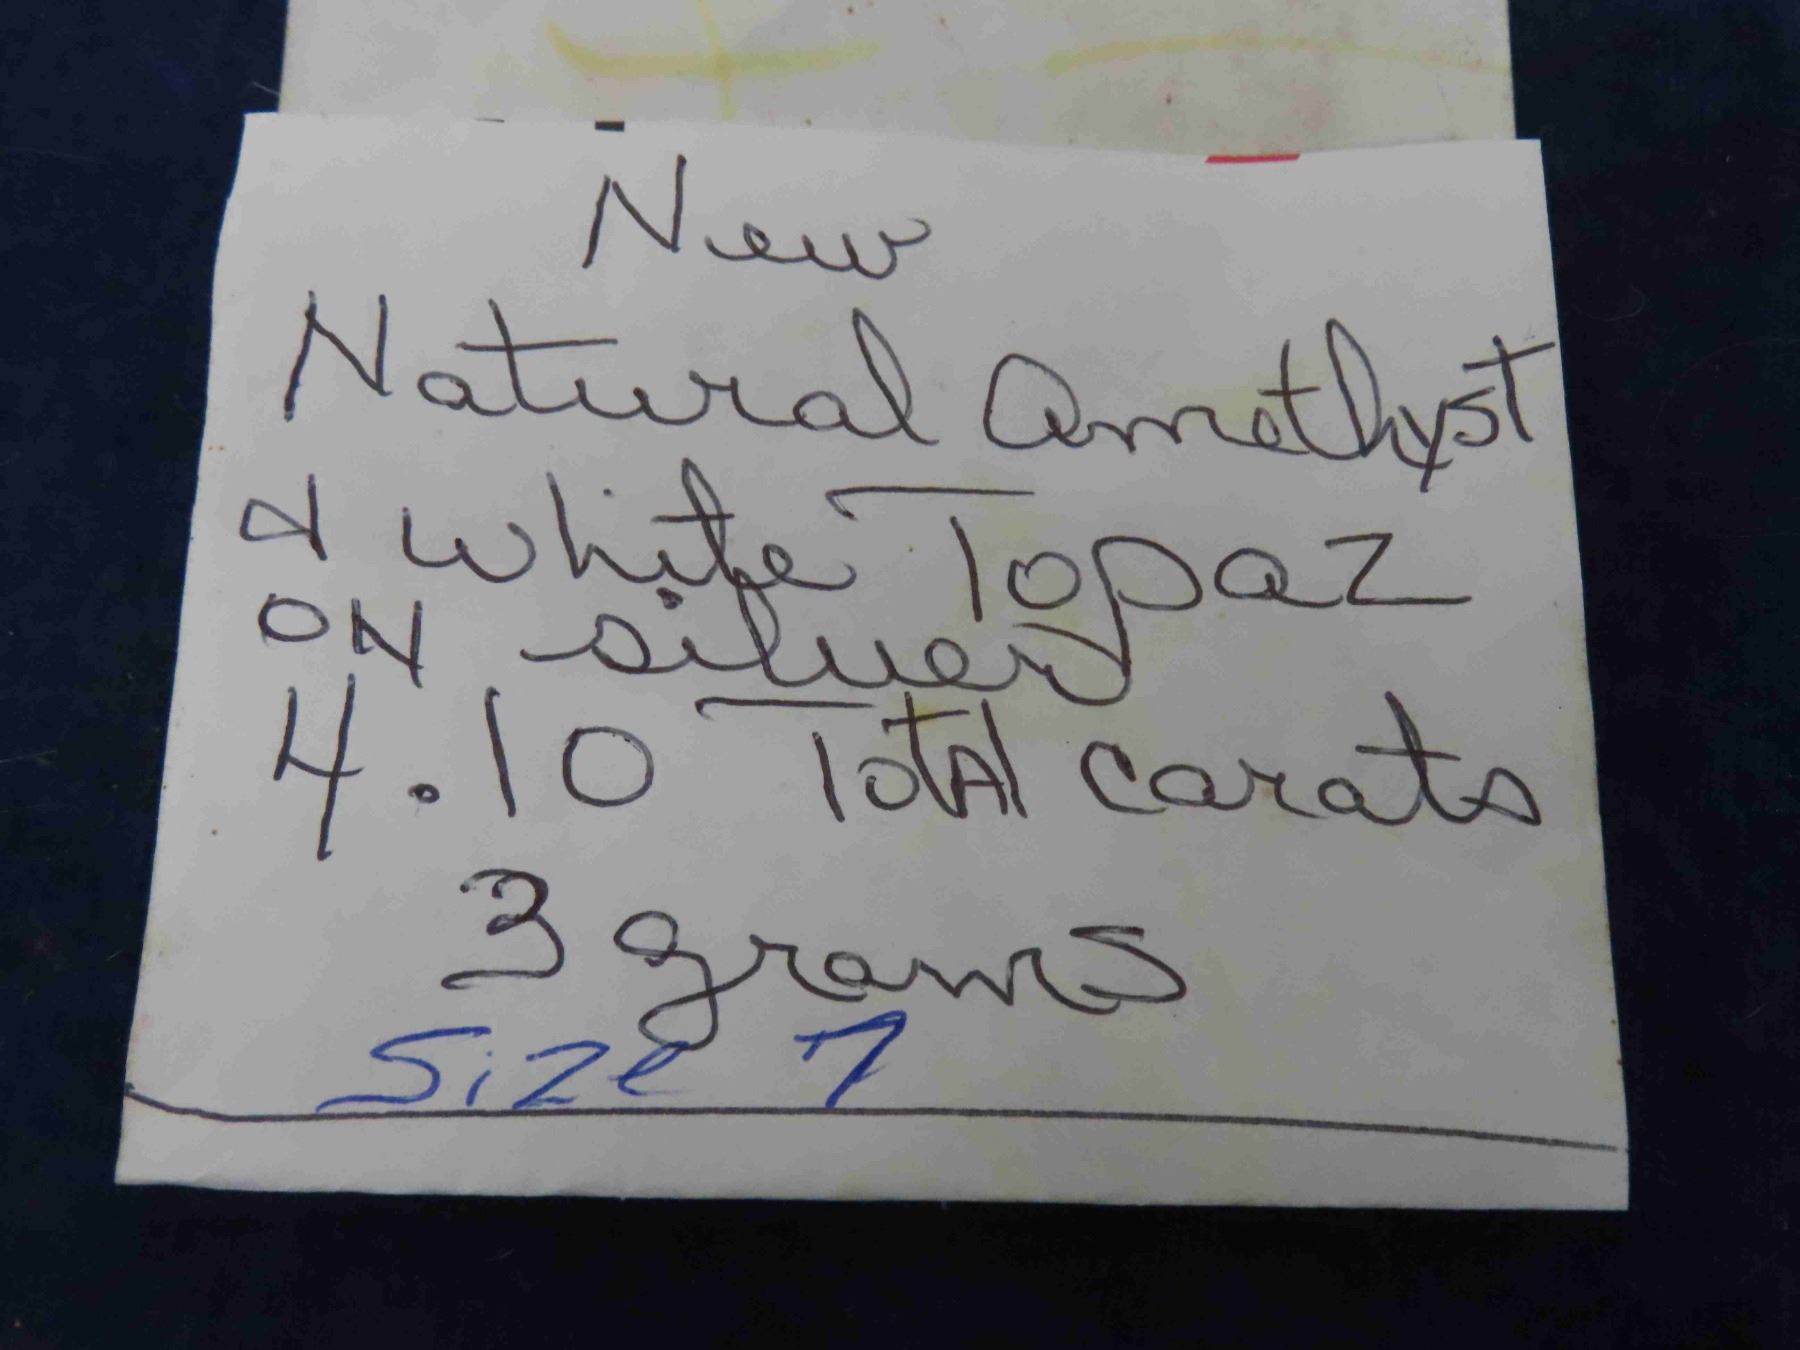 New
Natural Amethyst
& white Topaz
ON silver
4.10 Total carats
3 grams
Size 7